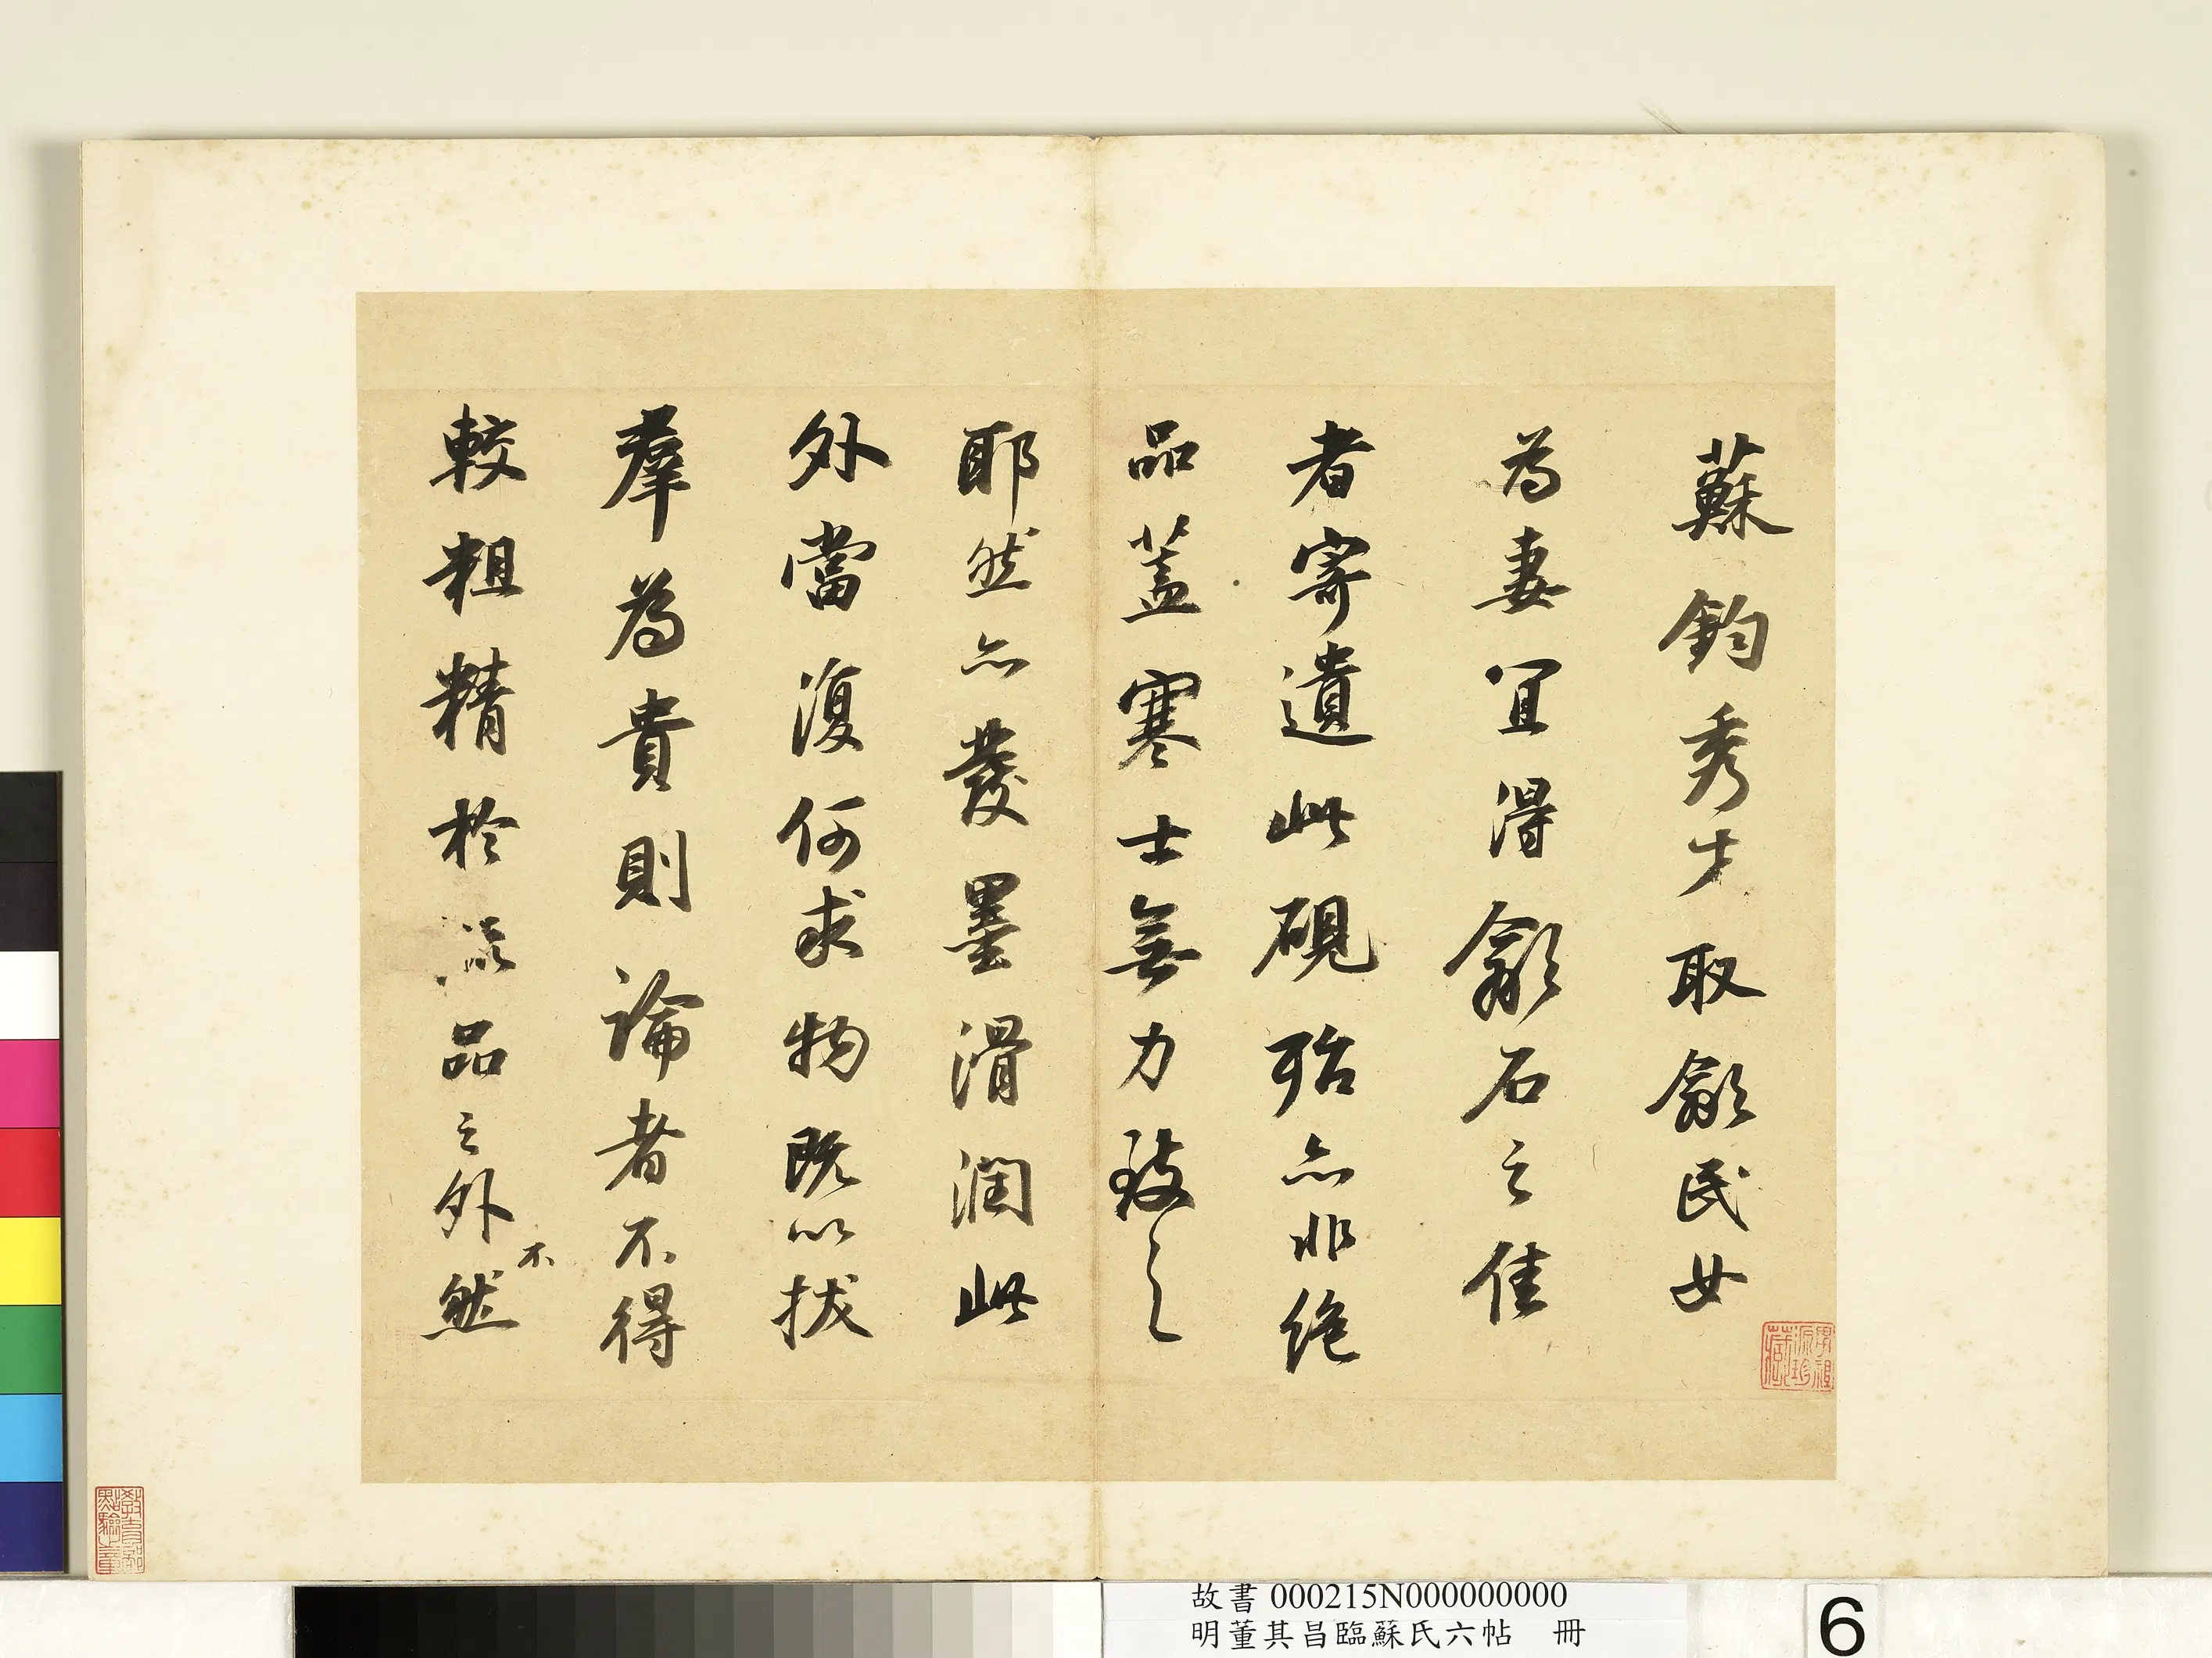 蘇鈞秀才取歙民女
為妻宜得歙石之佳
者寄遺此硯殆亦非絕
品蓋寒士無力致之
耶然亦發墨滑潤此
外當復何求物既以拔
羣為貴則論者不得
較粗精於流品之外不然
故書 000215N000000000
明董其昌臨蘇氏六帖 冊
6